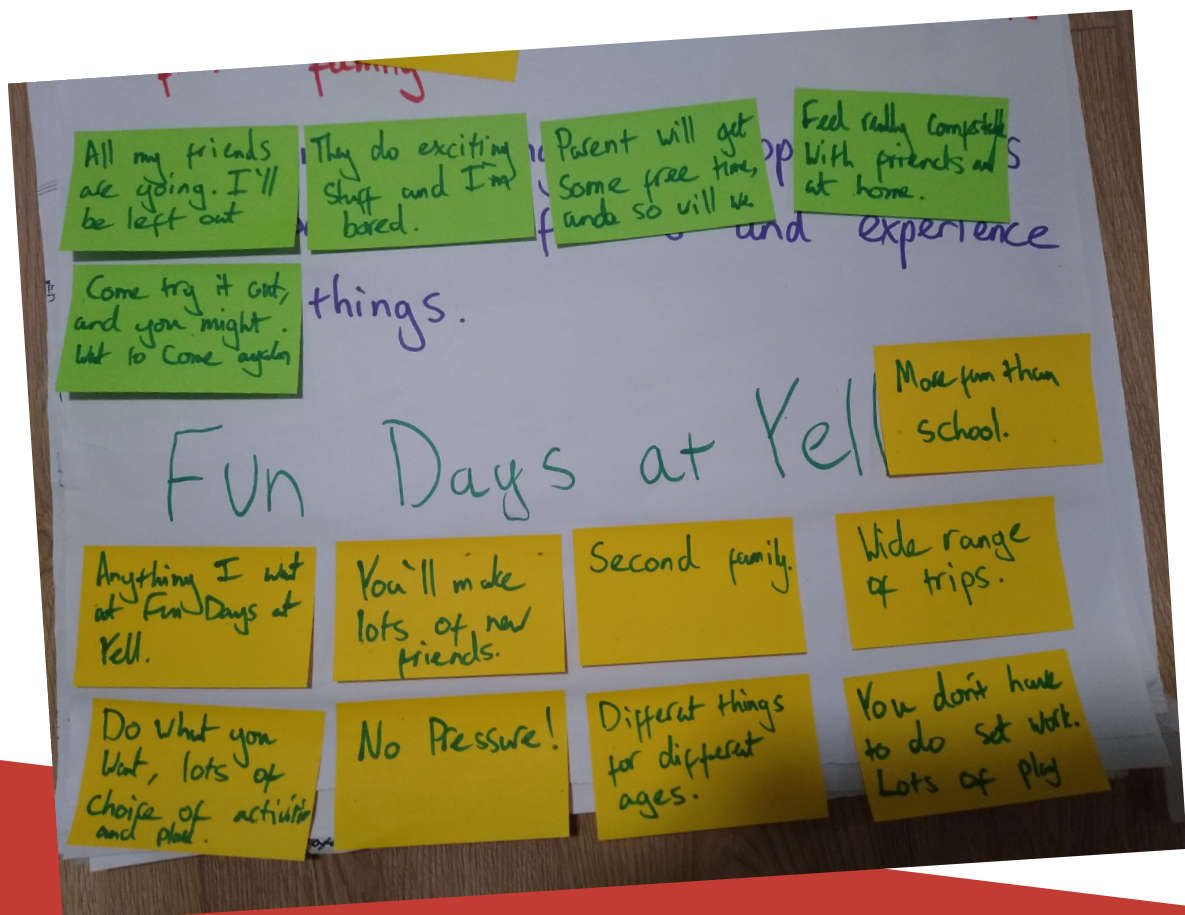 family
All my friends
are going. I'll
be left out
They do exciting
stuff and I'm
bored.
Parent will get
some free time,
anda so will we
Feel really
With friends and
at home.
and experience
Come try it out,
and you might.
to Come again
things.
More fun than
school.
Fun Days at Yell
Anything I wat
at Fun Days at
Yell.
You'll make
lots of new
friends.
Second family.
Wide range
of trips.
Do what you
Wat, lots of
choice of
and
No Pressure!
Differat things
for differat
ages.
You don't have
to do set work.
Lots of play